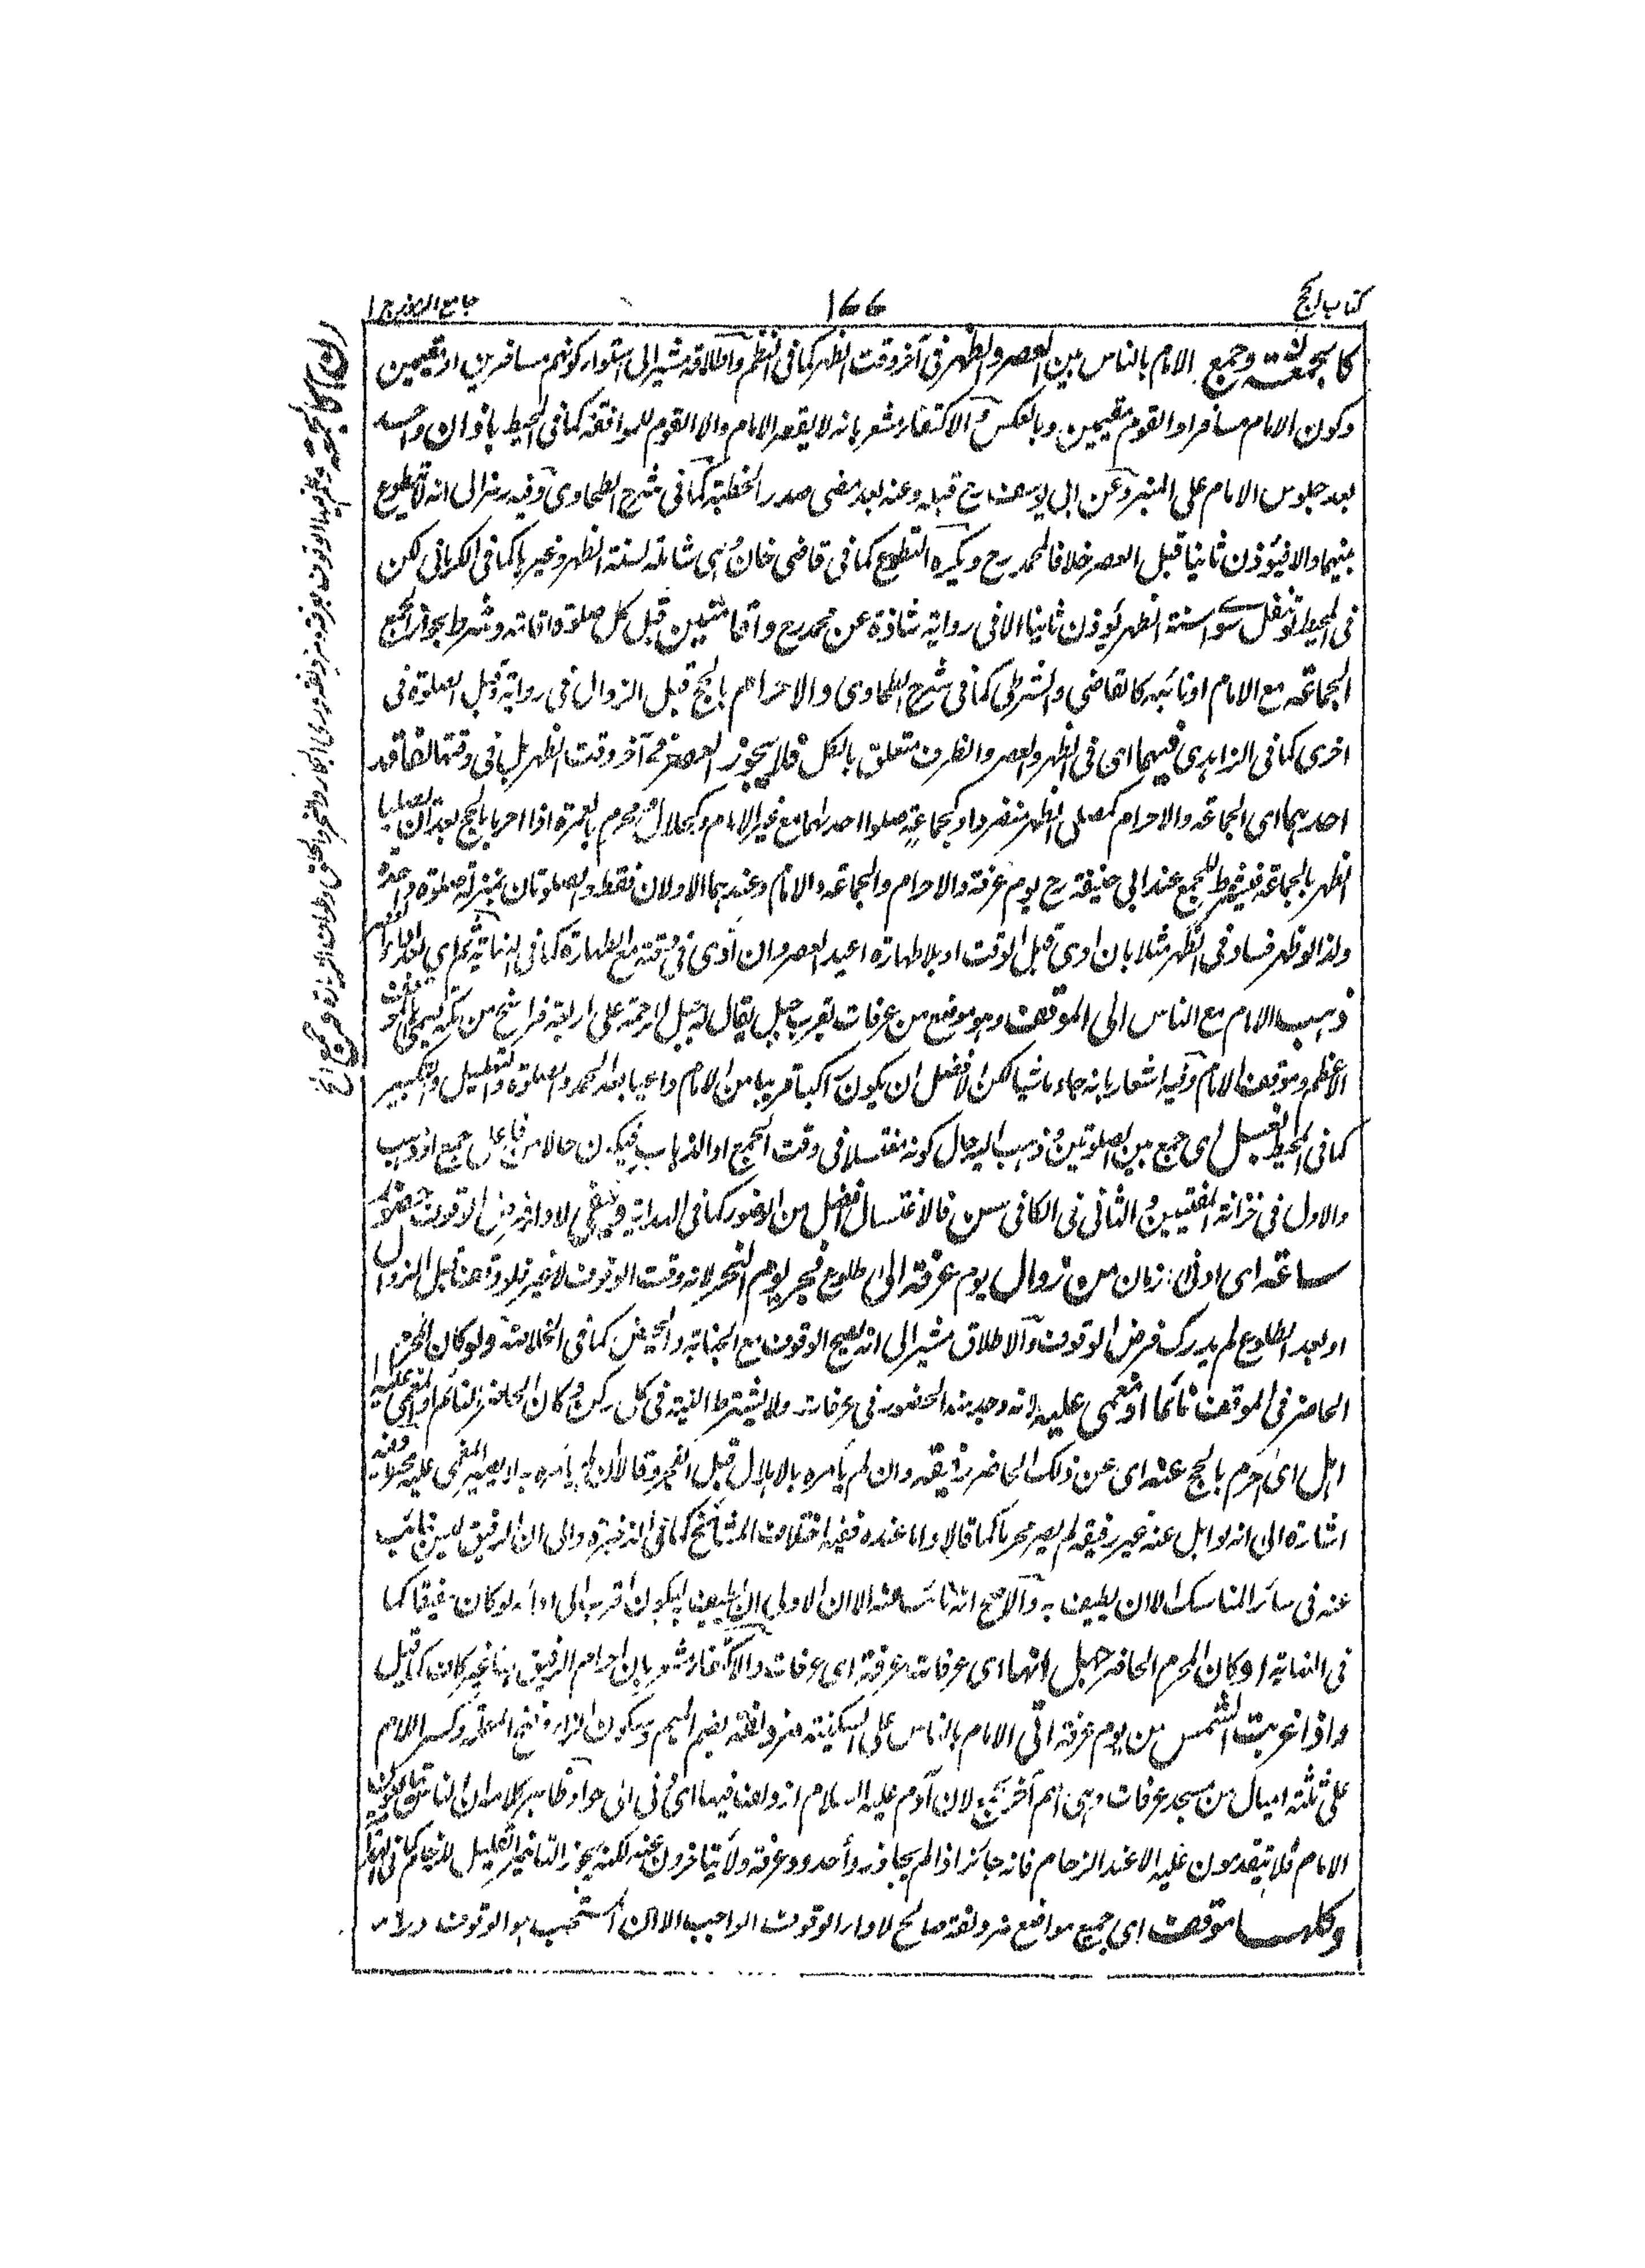 كتاب الحج
١٧٧
جامع الرموز ج ١
كالجمعة وجمع الامام بالناس بين العصر والظهر فى آخر وقت الظهر كما فى النظم واطلاقه مشير الى استواء كونهم مسافرين او مقيمين
وكون الامام مسافرا والقوم مقيمين وبالعكس والاكتفاء مشعر بانه لا يقصر الامام والا القوم للموافقة كما فى المحيط باذان واحد
بعد جلوس الامام على المنبر وعن ابى يوسف رح قبله وعنه بعد مضى صدر الخطبة كما فى شرح الطحاوى وفيه رمز الى انه لا يتطوع
بينهما والا فيؤذن ثانيا قبل العصر خلافا لمحمد رح ويكره التطوع كما فى قاضى خان وهى شاملة لسنة الظهر وغيرها كما فى الكرمانى لكن
فى المحيط لو تنفل سوى سنة الظهر يؤذن ثانيا الا فى رواية شاذة عن محمد رح واقامتين قبل كل صلوة اقامة وشرط بجواز الجمع
الجماعة مع الامام او نائبه كالقاضى والشرطى كما فى شرح الطحاوى والاحرام بالحج قبل الزوال فى رواية وقبل الصلوة فى
اخرى كما فى الزاهدى فيهما اى فى الظهر والعصر والظرف متعلق بالكل فلا يجوز العصر فى آخر وقت الظهر بل فى وقتها لفاقد
احدهما اى الجماعة والاحرام كمصلى الظهر منفردا وكجماعة صلوا احدهما مع غير الامام وكحلال ومحرم بالعمرة اذا احرما بالحج بعد ان صليا
الظهر بالجماعة فيشترط للجمع عند ابى حنيفة رح يوم عرفة والاحرام والجماعة والامام وعندهما الاولان فقط والصلوتان بمنزلة صلوة واحدة
ولذا لو ظهر فساد فى الظهر مثلا بان ادى قبل الوقت او بلا طهارة اعيد العصر وان ادى فى وقته مع الطهارة كما فى النهاية ثم اى بعد اداء العصر
ذهب الامام مع الناس الى الموقف وهو موضع من عرفات بقرب جبل يقال له جبل الرحمة على اربعة فراسخ من مكة يسمى بالموقف
الاعظم وموقف الامام وفيه اشعار بانه جاء ماشيا لكن الافضل ان يكون راكبا قريبا من الامام داعيا بعد الحمد والصلوة والتهليل والتكبير
كما فى المحيط بغسل اى جمع بين الصلوتين وذهب اليه حال كونه مغتسلا فى وقت الجمع او الذهاب فيكون حالا من فاعل جمع او ذهب
والاول فى خزانة المفتيين والثانى فى الكافى سن فالاغتسال افضل من الوضوء كما فى الهداية ويكفى لاداء فرض الوقوف حضور
ساعة اى ادنى زمان من زوال يوم عرفة الى طلوع فجر يوم النحر لانه وقت الوقوف لا غير فلو وقف قبل الزوال
او بعد الطلوع لم يدرك فرض الوقوف والاطلاق مشير الى انه يصح الوقوف مع الجنابة والحيض كما فى الخلاصة ولو كان المحرم
الحاضر فى الموقف نائما او مغمى عليه لانه وجد منه الحضور فى عرفات ولا يشترط النية فى كل ركن وكان الحاضر النائم او المغمى عليه
اهل اى احرم بالحج عنه اى عن ذلك الحاضر رفيقه وان لم يأمره بالاهلال قبل الفجر وقالا ان لم يأمره به لا يصير المغمى عليه محرما وفيه
اشارة الى انه لو اهل عنه غير رفيقه لم يصر محرما كما قالا واما عنده ففيه اختلاف المشائخ كما فى الذخيرة والى ان الرفيق ليس بنائب
عنه فى سائر المناسك الا ان يطيف به والاصح انه نائب عنه الا ان الاولى ان يطيف به ليكون اقرب الى اداء لو كان مفيقا كما
فى النهاية او كان المحرم الحاضر جهل انها اى عرفات عرفة اى عرفات والاكتفاء مشعر بان احرام الرفيق وغيره كان كما قيل
واذا غربت الشمس من يوم عرفة اتى الامام بالناس على السكينة مزدلفة بضم الميم وسكون الزاء وفتح المهملة وكسر اللام
على ثلثة اميال من مسجد عرفات وهى اسم آخر لجمع لان آدم عليه السلام ازدلف فيها اى دنى الى حوا وظاهر كلامه ان الناس
الامام فلا يتقدمون عليه الا عند الزحام فانه جائز اذا لم يجاوزوا حدود عرفة ولا يتاخرون عنه لكنه يجوز التاخير القليل للزحام كما فى الهداية
وكلها موقف اى جميع مواضع مزدلفة صالح لاداء الوقوف الواجب الا ان المستحب هو الوقوف وراء